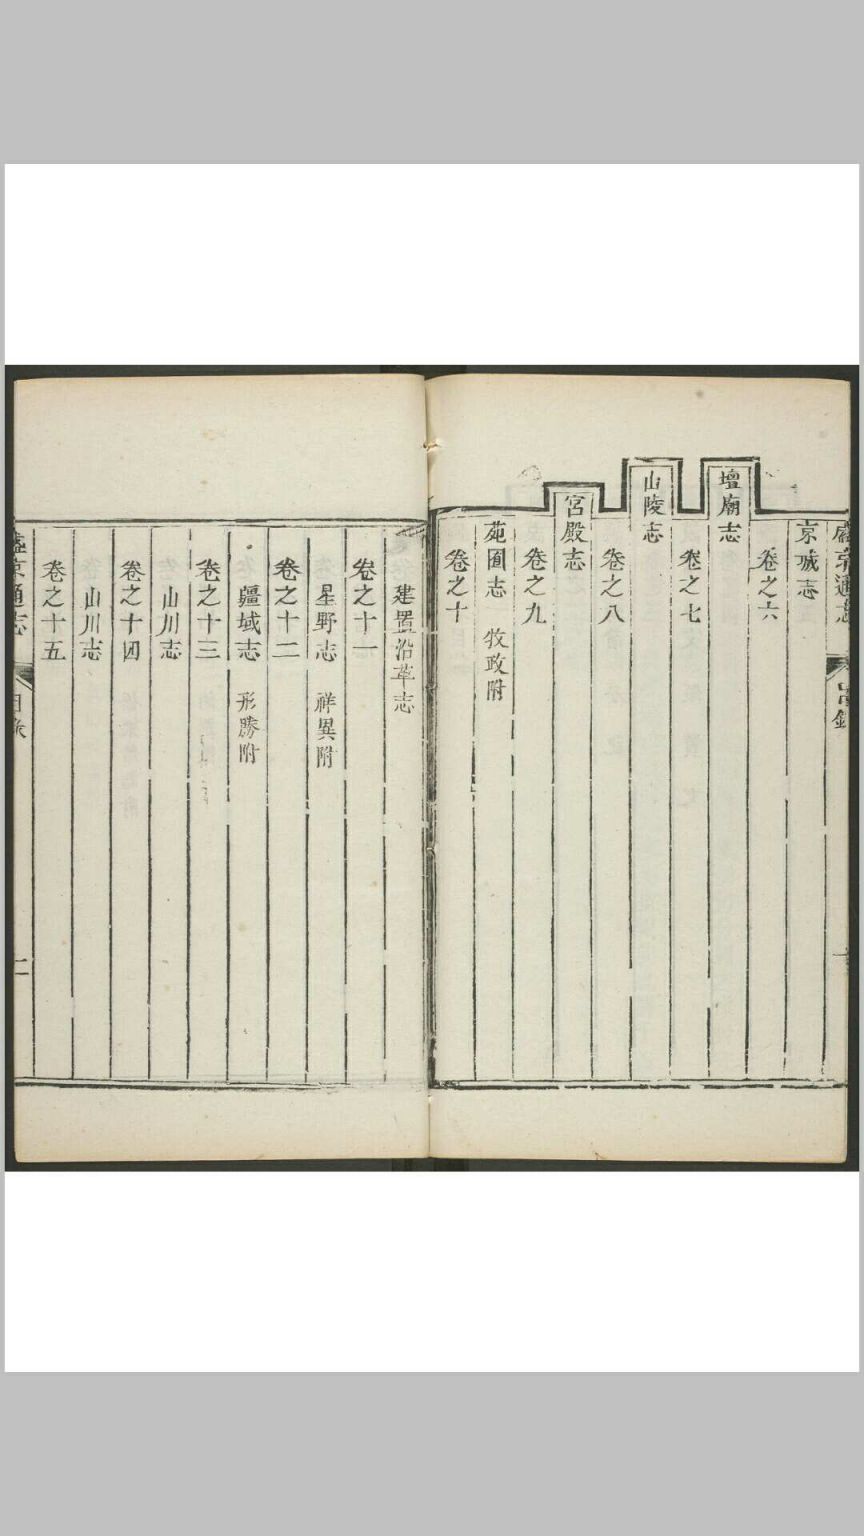 盛京通志
京城志
卷之六
壇廟志
卷之七
山陵志
卷之八
宮殿志
卷之九
苑囿志 牧政附
卷之十
建置沿革志
卷之十一
星野志 祥異附
卷之十二
疆域志 形勝附
卷之十三
山川志
卷之十四
山川志
卷之十五
盛京通志 目錄 二